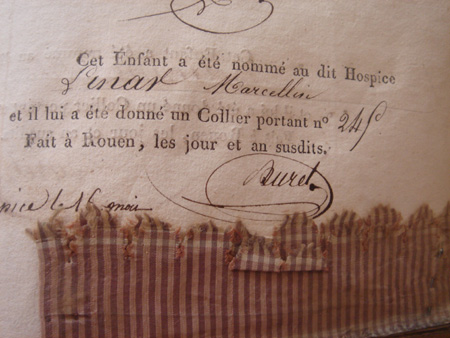 Cet Enfant a été nommé au dit Hospice
Marcellin
et il lui a été donné un Collier portant nº 245
Fait à Rouen, les jour et an susdits.
Buret
le 16